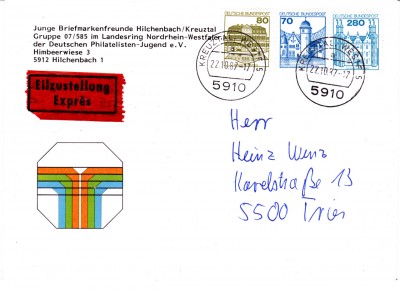 Junge Briefmarkenfreunde Hilchenbach/Kreuztal
Gruppe 07/585 im Landesring Nordrhein-Westfalen
der Deutschen Philatelisten-Jugend e.V.
Himbeerwiese 3
5912 Hilchenbach 1
Eilzustellung
Exprès
80
70
280
DEUTSCHE BUNDESPOST
DEUTSCHE BUNDESPOST
KREUZTAL, WESTF 5
22.10.87-17
5910
KREUZTAL, WESTF 5
22.10.87-17
5910
Herr
Heinz Wenz
Karlstraße 13
5500 Trier